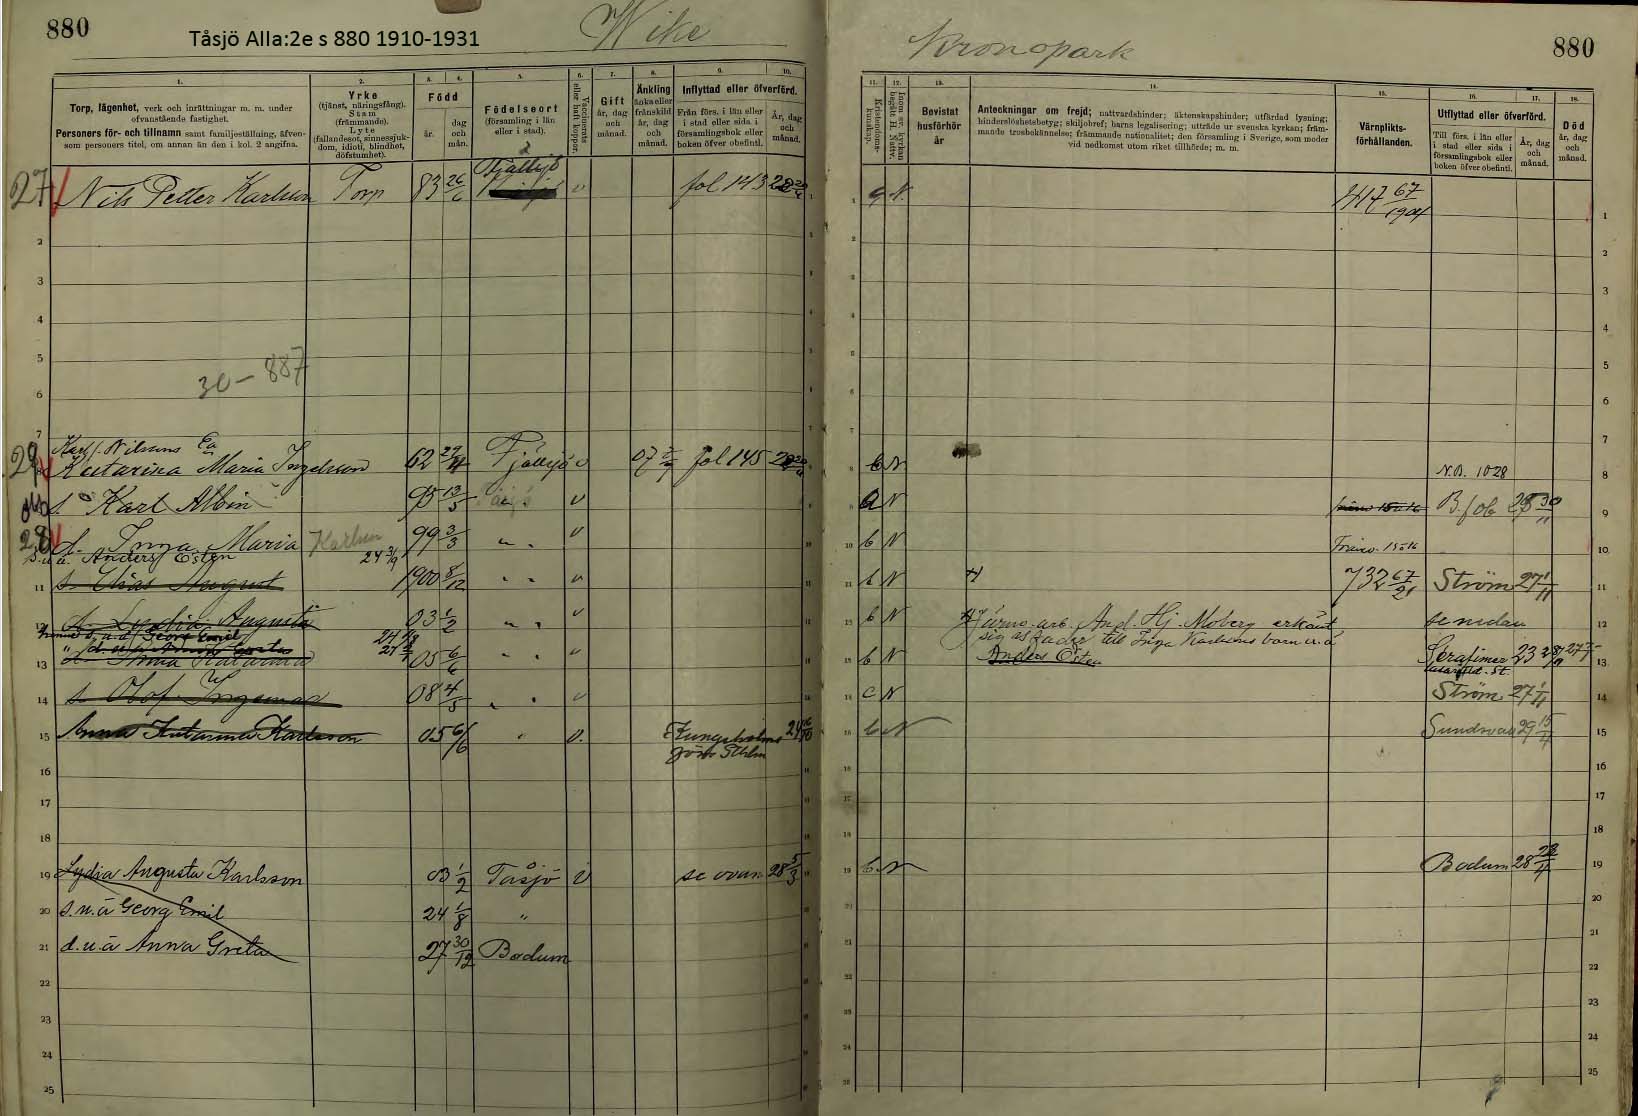 880
Tåsjö Alla:2e s 880 1910-1931
Wike
Kronopark
880
1. 2. 3. 4. 5. 6. 7. 8. 9. 10.
Torp, lägenhet, verk och inrättningar m. m. under
ofvanstående fastighet.
Personers för- och tillnamn samt familjeställning, äfven-
som personers titel, om annan än den i kol. 2 angifna.
Yrke
(tjänst, näringsfång).
Stam
(främmande).
Lyte
(fallandesot, sinnessjuk-
dom, idioti, blindhet,
döfstumhet).
Född
år.
dag
och
mån.
Födelseort
(församling i län
eller i stad).
Vaccinerats
eller haft koppor.
Gift
år, dag
och
månad.
Änkling
änka eller
frånskild
år, dag
och
månad.
Inflyttad eller öfverförd.
Från förs. i län eller
i stad eller sida i
församlingsbok eller
boken öfver obefintl.
År, dag
och
månad.
11. 12. 13. 14. 15. 16. 17. 18.
Kristendoms-
kunskap.
Inom sv. kyrkan
begått H. Nattv.
Bevistat
husförhör
år
Anteckningar om frejd; nattvardshinder; äktenskapshinder; utfärdad lysning;
hinderslöshetsbetyg; skiljobref; barns legalisering; utträde ur svenska kyrkan; främ-
mande trosbekännelse; främmande nationalitet; den församling i Sverige, som moder
vid nedkomst utom riket tillhörde; m. m.
Värnplikts-
förhållanden.
Utflyttad eller öfverförd.
Till förs. i län eller
i stad eller sida i
församlingsbok eller
boken öfver obefintl.
År, dag
och
månad.
Död
år, dag
och
månad.
27 Nils Petter Karlsson Torp 83 26/6 Fjällsjö v fol 143 28 N. 417 67/1904 1
2
3
4
5
30-887
6
7
Karl Nilssons Ea
29 Katarina Maria Ingelsson 62 Fjällsjö v 07 fol 145 b N N.B. 1028 8
s. Karl Albin 95 13/5 v a N B. fob 9
28 d. Inga Maria Karlsson 99 3/3 " v b N 10
s. u. ä. Anders Östen 24
11 s. Elias August 1900 8/12 " v b N 732 67/21 Ström 27 1/11 11
12 d. Lydia Augusta 03 1/2 " v b N Järnv. arb. And. Hj. Moberg erkänt se nedan 12
sig as fader till Inga Karlssons barn u. ä
Anders Östen
s. u. ä Georg Emil 24
13 d. Anna Katarina 05 6/6 " v b N Serafimer 23 13
14 s. Olof Ingemar 08 4/5 " v c N Ström 27 1/11 14
15 Anna Katarina Karlsson 05 6/6 " v. Kungsholms b N Sundsvall 29 15/4 15
förs Sthlm
16
17
18
19 Lydia Augusta Karlsson 03 1/2 Tåsjö v se ovan 28 5/3 b N Bodum 28 19
20 s.u.ä Georg Emil 24 1/8 " 20
21 d.u.ä Anna Greta 27 30/12 Bodum 21
22
23
24
25